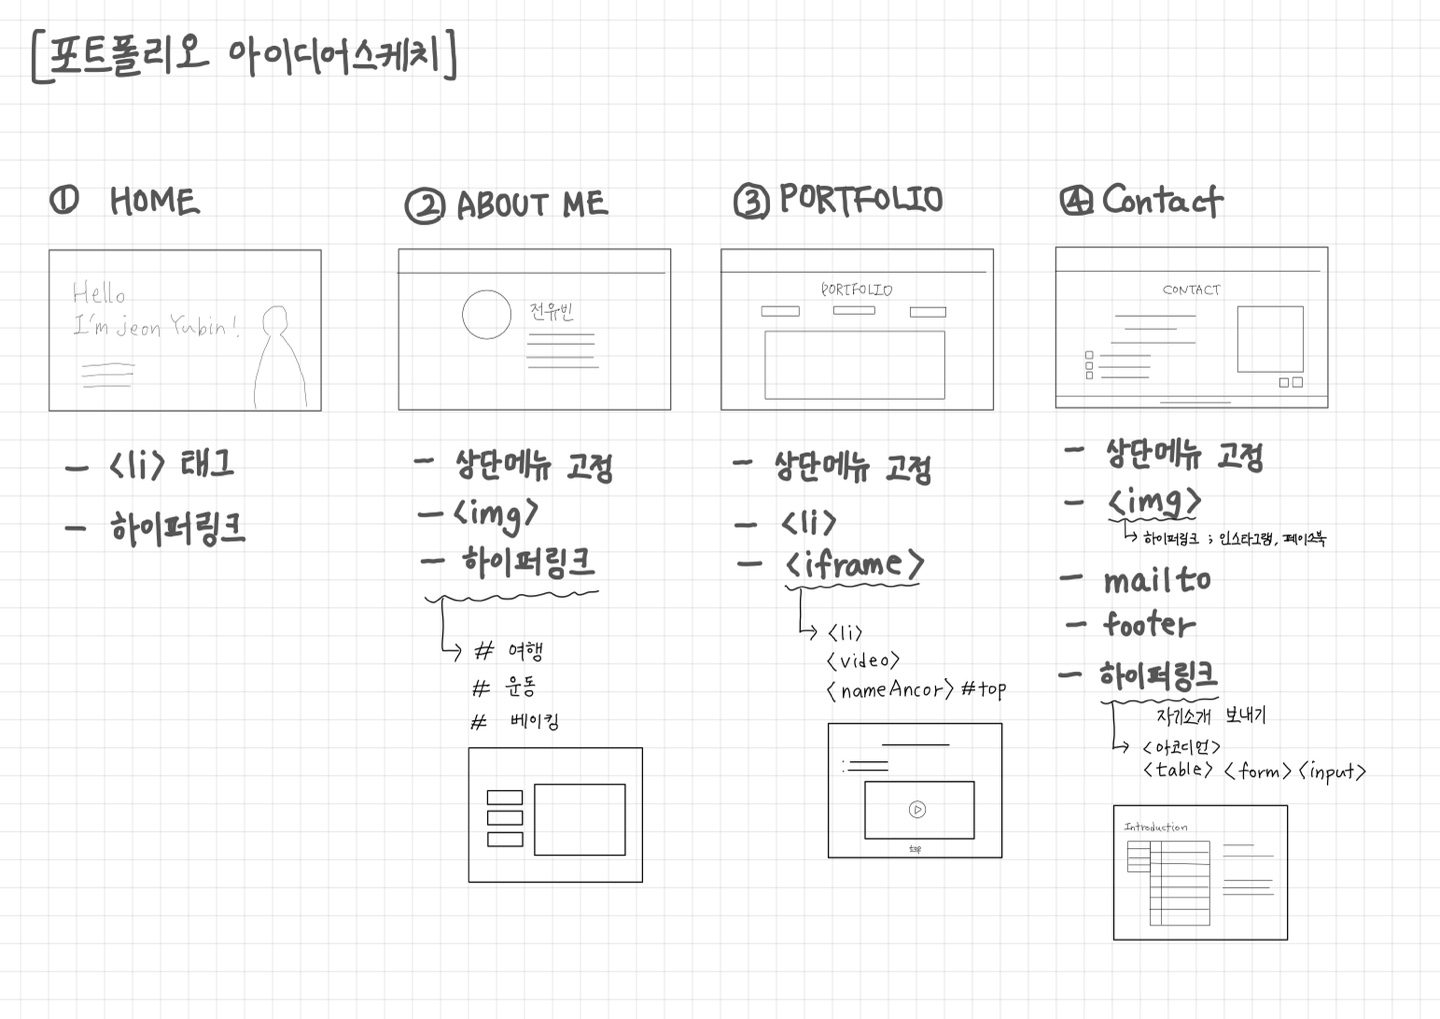 [포트폴리오 아이디어스케치]
① HOME
Hello
I'm jeon Yubin!
- <li> 태그
- 하이퍼링크
② ABOUT ME
전유빈
- 상단메뉴 고정
- <img>
- 하이퍼링크
# 여행
# 운동
# 베이킹
③ PORTFOLIO
PORTFOLIO
- 상단메뉴 고정
- <li>
- <iframe>
<li>
<video>
<nameAncor> #top
top
④ Contact
CONTACT
- 상단메뉴 고정
- <img>
하이퍼링크 ; 인스타그램, 페이스북
- mailto
- footer
- 하이퍼링크
자기소개 보내기
<아코디언>
<table> <form> <input>
Introduction